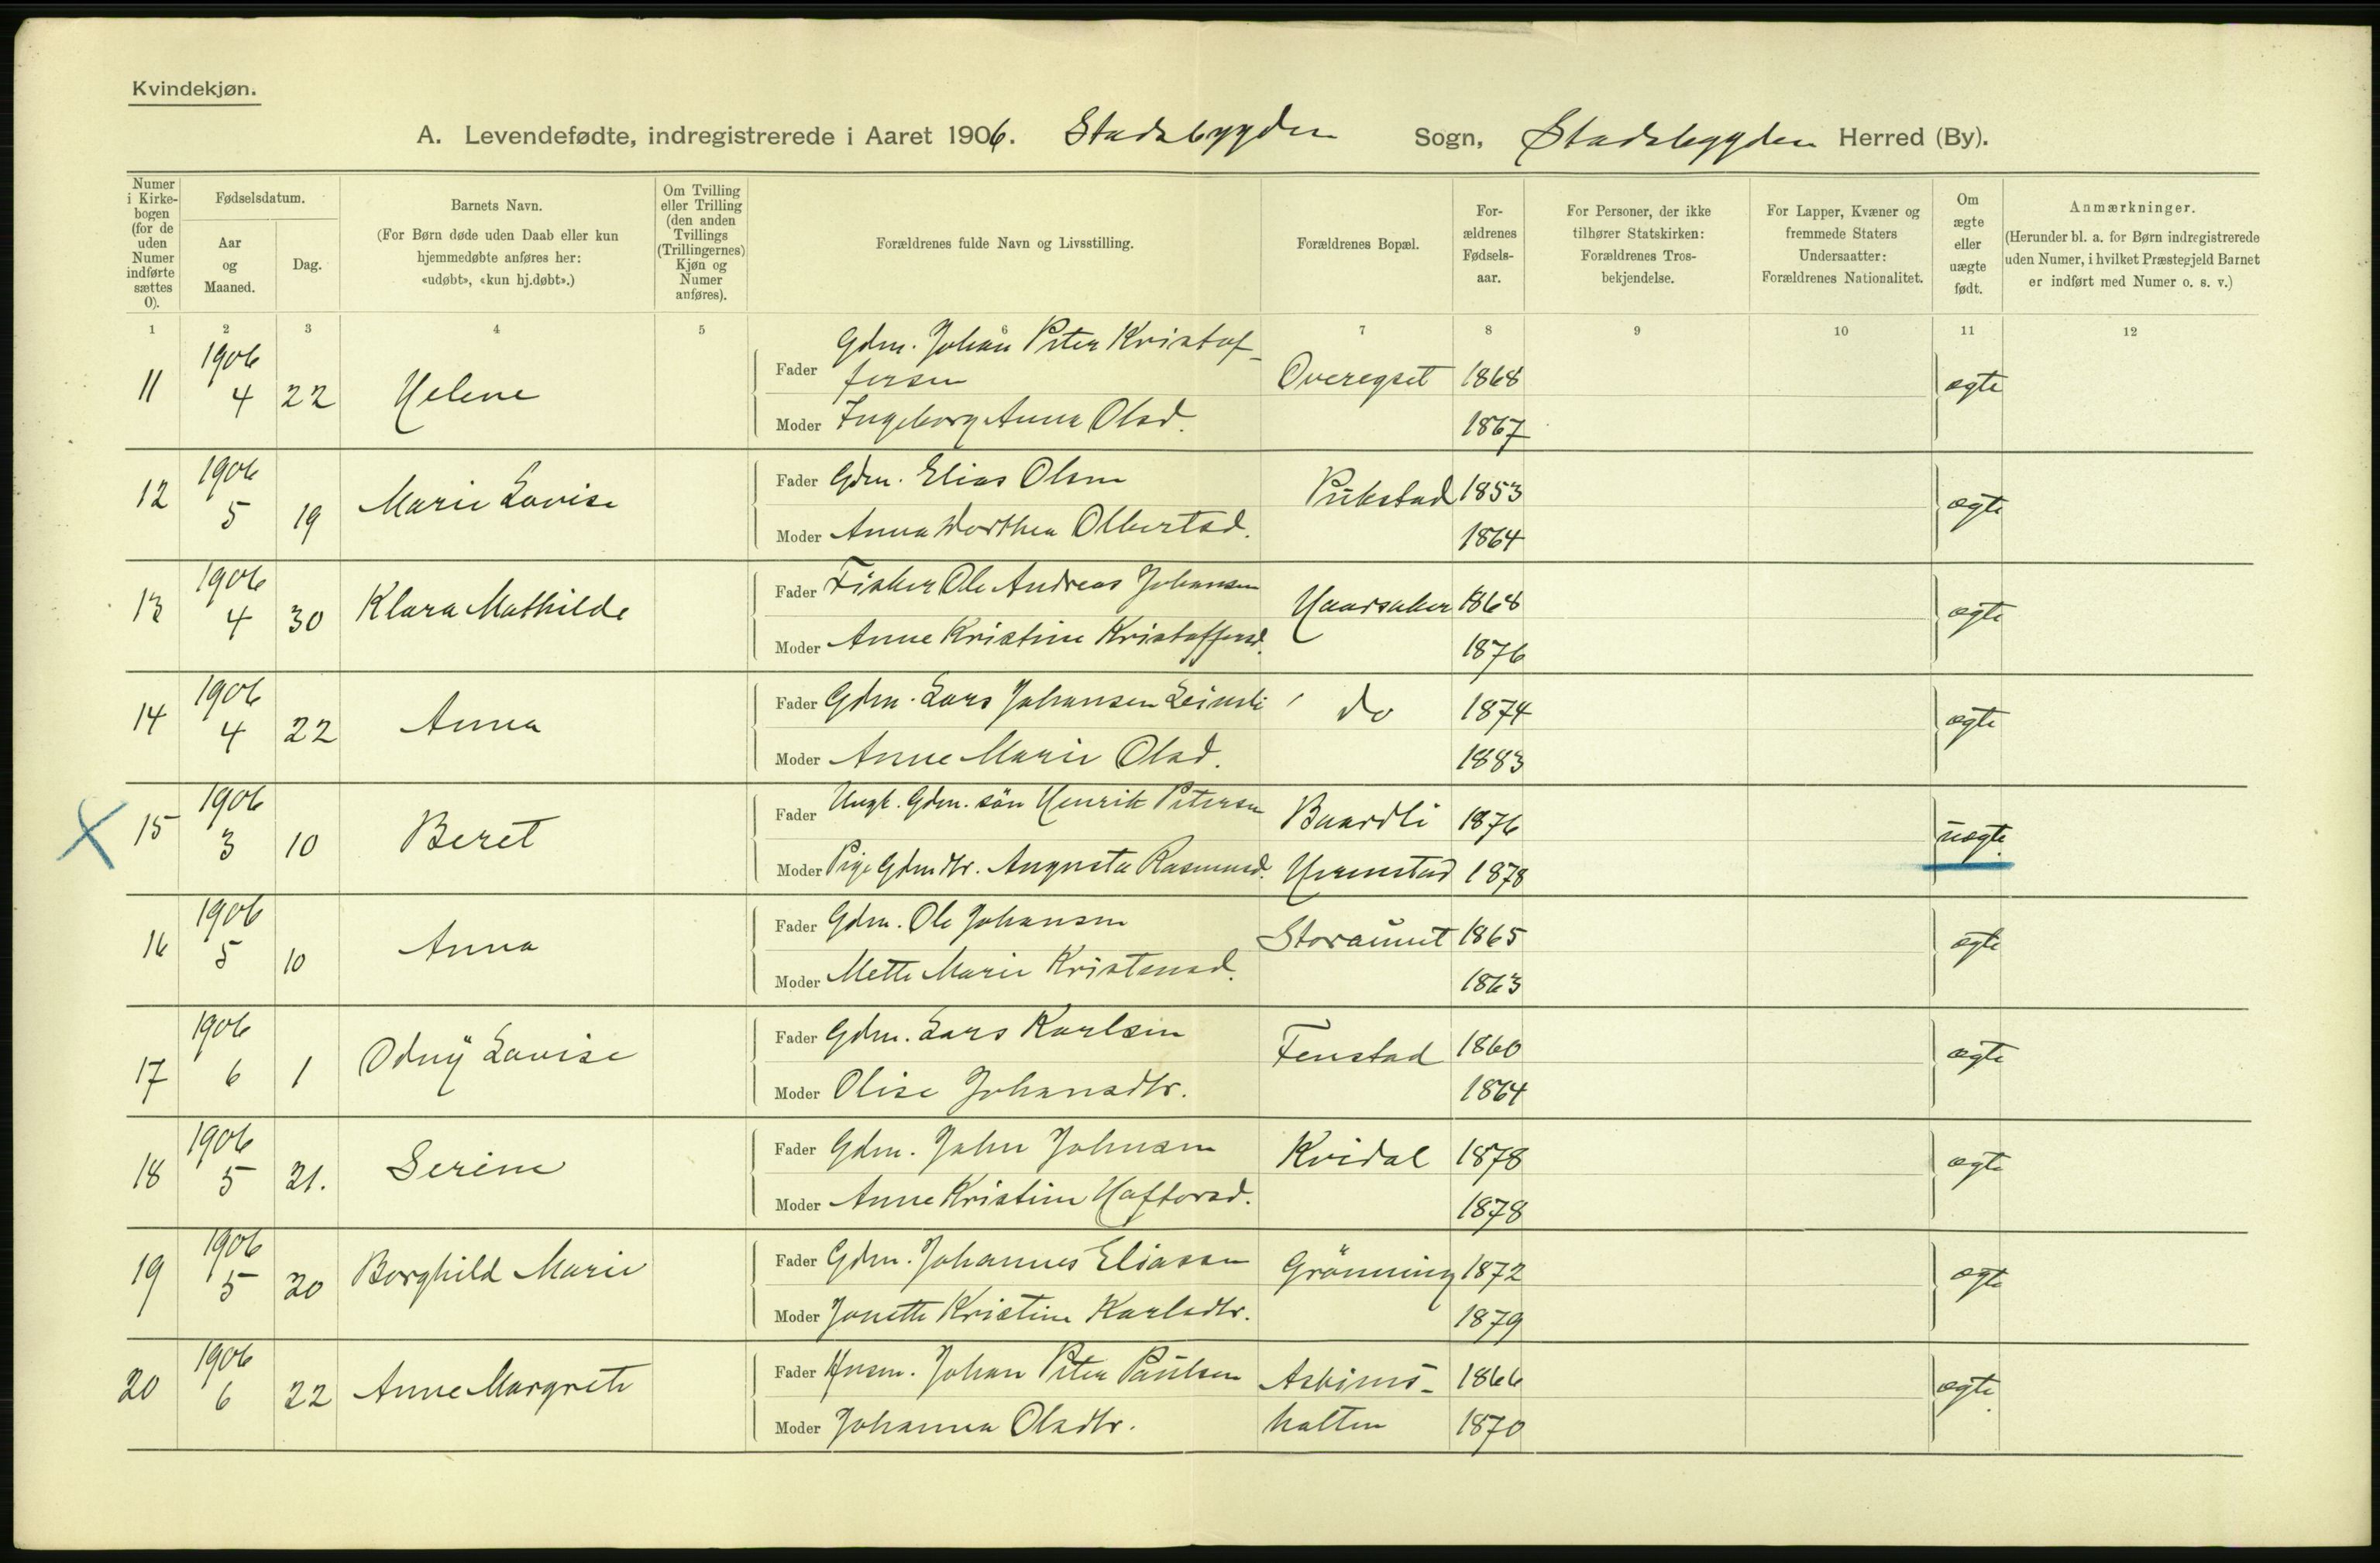 Kvindekjøn.
A. Levendefødte, indregistrerede i Aaret 1906. Stadsbygden Sogn, Stadsbygden Herred (By).
Numer i Kirke-bogen (for de uden Numer indførte sættes 0).
Fødselsdatum.
Aar og Maaned.
Dag.
Barnets Navn.
(For Børn døde uden Daab eller kun hjemmedøbte anføres her: «udøbt», «kun hj.døbt».)
Om Tvilling eller Trilling (den anden Tvillings (Trillingernes) Kjøn og Numer anføres).
Forældrenes fulde Navn og Livsstilling.
Forældrenes Bopæl.
For-ældrenes Fødsels-aar.
For Personer, der ikke tilhører Statskirken: Forældrenes Tros-bekjendelse.
For Lapper, Kvæner og fremmede Staters Undersaatter: Forældrenes Nationalitet.
Om ægte eller uægte født.
Anmærkninger.
(Herunder bl. a. for Børn indregistrerede uden Numer, i hvilket Præstegjeld Barnet er indført med Numer o. s. v.)
1 2 3 4 5 6 7 8 9 10 11 12
11 1906 4 22 Helene Fader Gdm. Johan Peter Kristof-
fersen Overegset 1868 ægte
Moder Ingeborg Anna Olsd. 1867
12 1906 5 19 Marie Lovise Fader Gdm. Elias Olsen Pukstad 1853 ægte
Moder Anna Dorthea Olbertsd. 1864
13 1906 4 30 Klara Mathilde Fader Fisker Ole Andreas Johansen Haarsaker 1868 ægte
Moder Anne Kristine Kristoffersd. 1876
14 1906 4 22 Anna Fader Gdm. Lars Johansen Leinsli do 1874 ægte
Moder Anne Marie Olsd. 1883
15 1906 3 10 Beret Fader Ungk. Gdm. sön Henrik Petersen Baardli 1876 uægte
Moder Pige Gdmdtr. Augusta Rasmusd. 1878
16 1906 5 10 Anna Fader Gdm. Ole Johansen 1865 ægte
Moder Mette Marie Kristensd. 1863
17 1906 6 1 Odny Lovise Fader Gdm. Lars Karlsen Fenstad 1860 ægte
Moder Olise Johansdtr. 1864
18 1906 5 21. Serine Fader Gdm. John Johnsen Kvidal 1878 ægte
Moder Anne Kristine Haftorsd. 1878
19 1906 5 20 Borghild Marie Fader Gdm. Johannes Eliassen Grönning 1872 ægte
Moder Jonette Kristine Karlsdtr. 1879
20 1906 6 22 Anne Margrete Fader Husm. Johan Peter Paulsen Askims- 1866 ægte
Moder Johanna Olsdtr. halten 1870